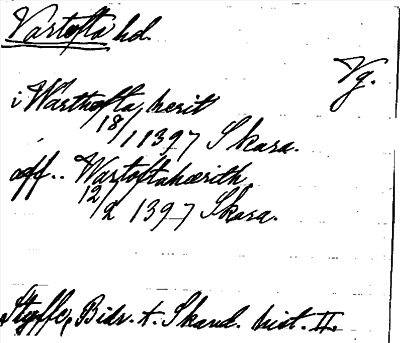 Vartofta hd.
Vg.
i Warthofta herit
18/1 1397 Skara.
aff.. Wartoftahærith
12/2 1397 Skara.
Styffe, Bidr. t. Skand. hist. II.